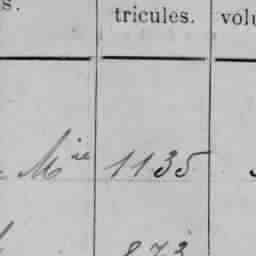 s. tricules. volu
Mie 1135
873